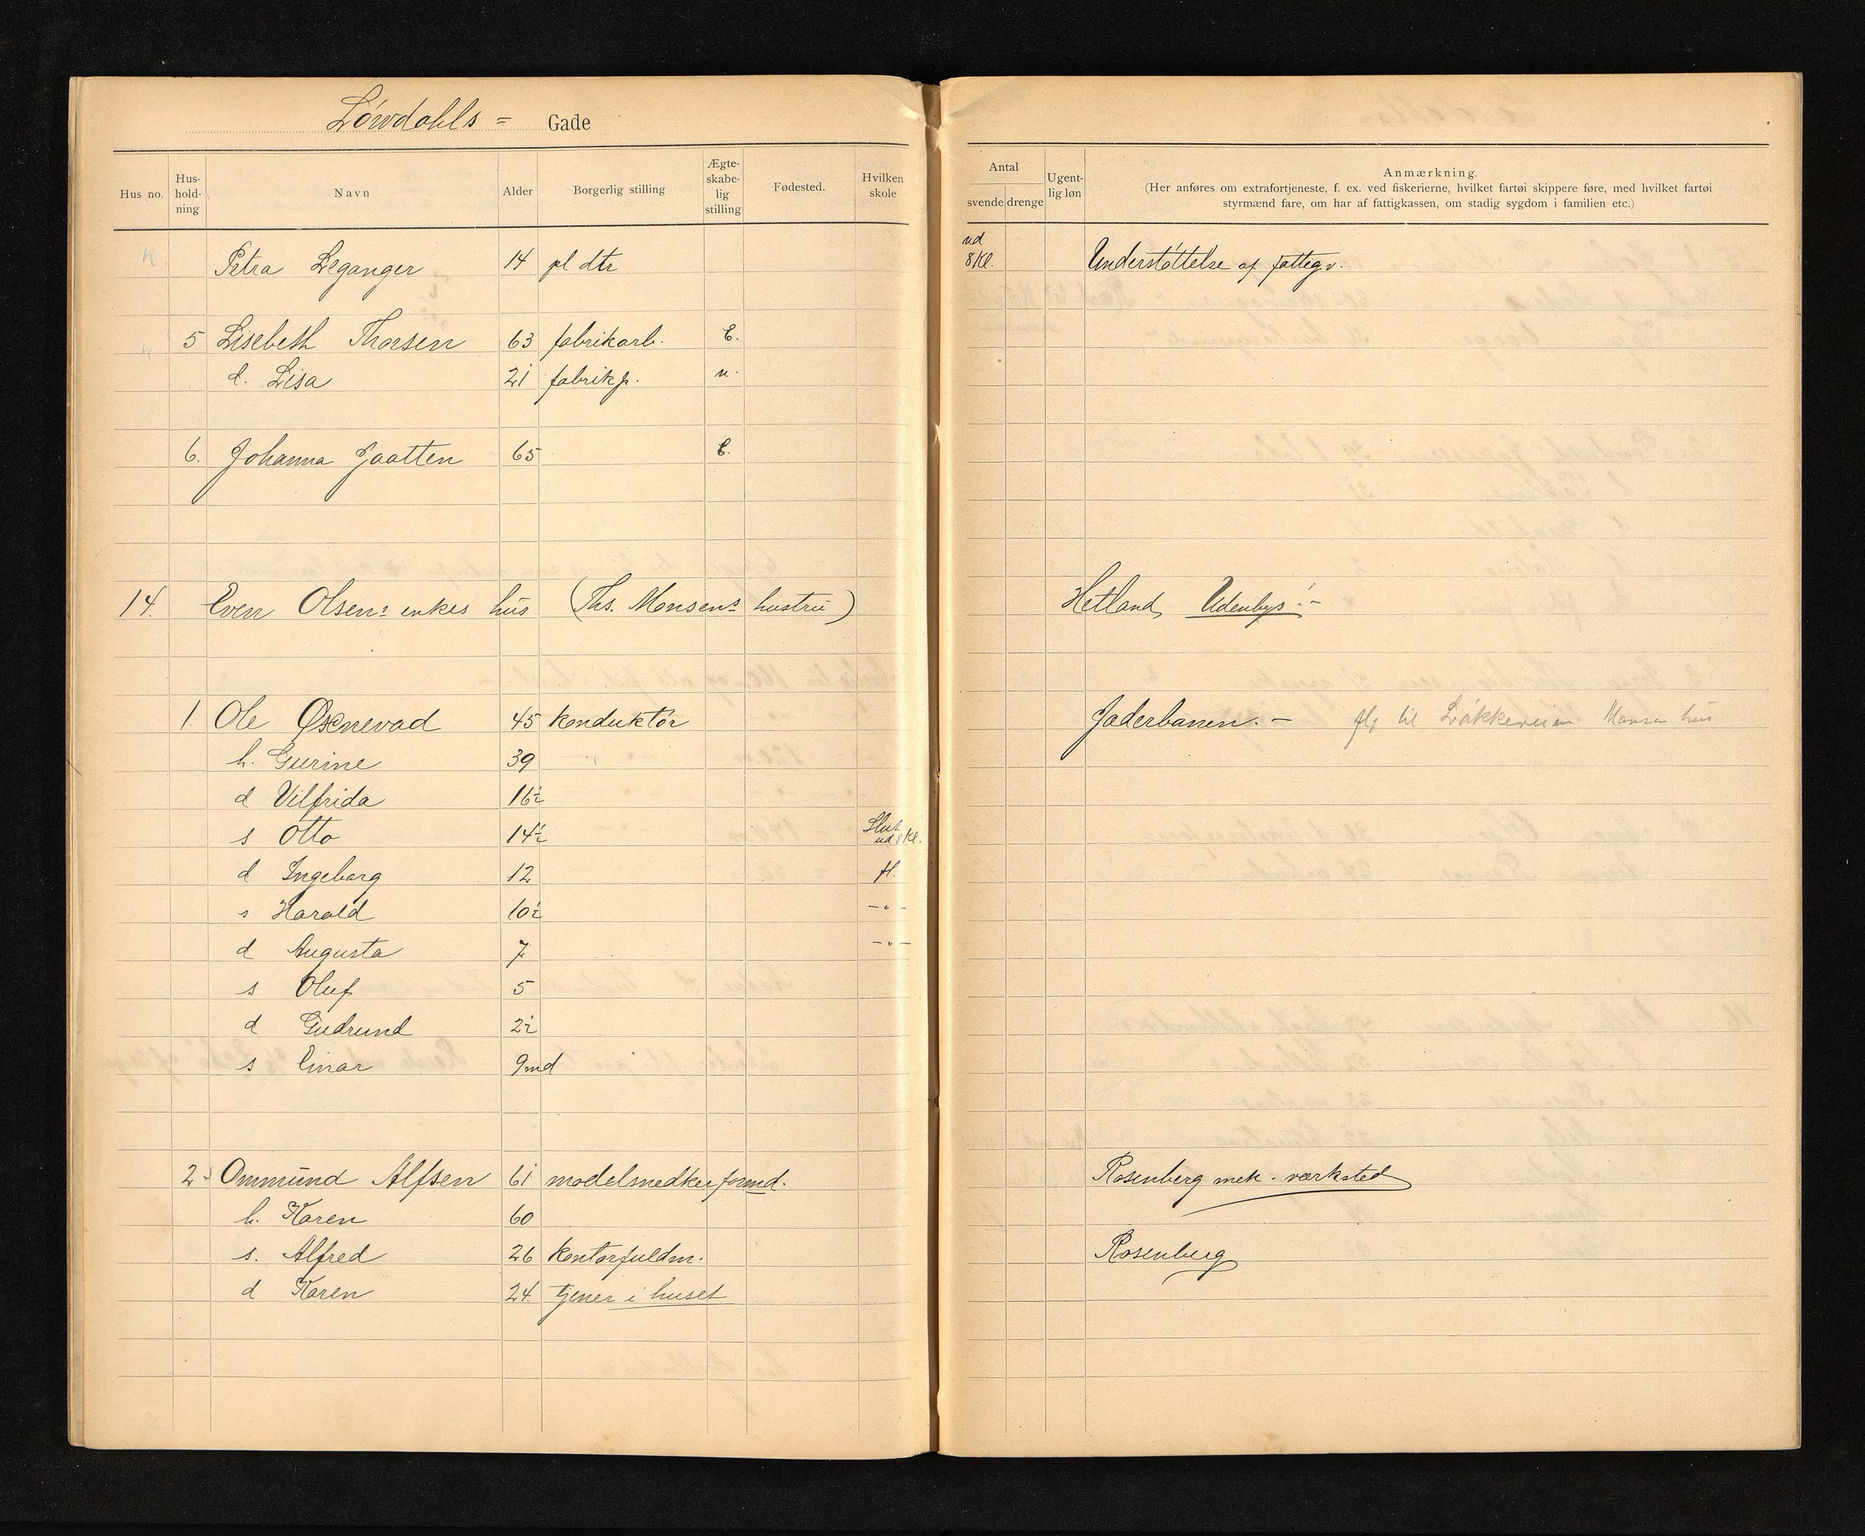 Löwdahls = Gade
Hus no. Hus-hold-ning Navn Alder Borgerlig stilling Ægte-skabe-lig stilling Fødested. Hvilken skole Antal svende drenge Ugent-lig løn Anmærkning.
(Her anføres om extrafortjeneste, f. ex. ved fiskerierne, hvilket fartøi skippere føre, med hvilket fartøi
styrmænd fare, om har af fattigkassen, om stadig sygdom i familien etc.)
Petra Leganger 14 pl dtr ud 8 Kl. Understöttelse af fattegv.
5 Lisebeth Thorsen 63 fabrikarb. E.
d. Lisa 21 fabrikp. u.
6. Johanna Jaatten 65 E.
14. Even Olsens enkes hus (Ths. Monsens hustru) Hetland, Udenbys. -
1 Ole Øksnevad 45 konduktör Jæderbanen. - fl. til Lökkeveien Monsen hus
h. Gurine 39
d Vilfrida 16½
s Otto 14½ Slut ud 8 Kl.
d Ingeborg 12 fl.
s Harald 10½ -"-
d Augusta 7 -"-
s Oluf 5
d Gudrund 2½
s Einar 9 md
2. Ommund Alfsen 61 modelsnedkerformd. Rosenberg mek. værksted
h. Karen 60
s. Alfred 26 kontorfuldm. Rosenberg
d Karen 24 tjener i huset